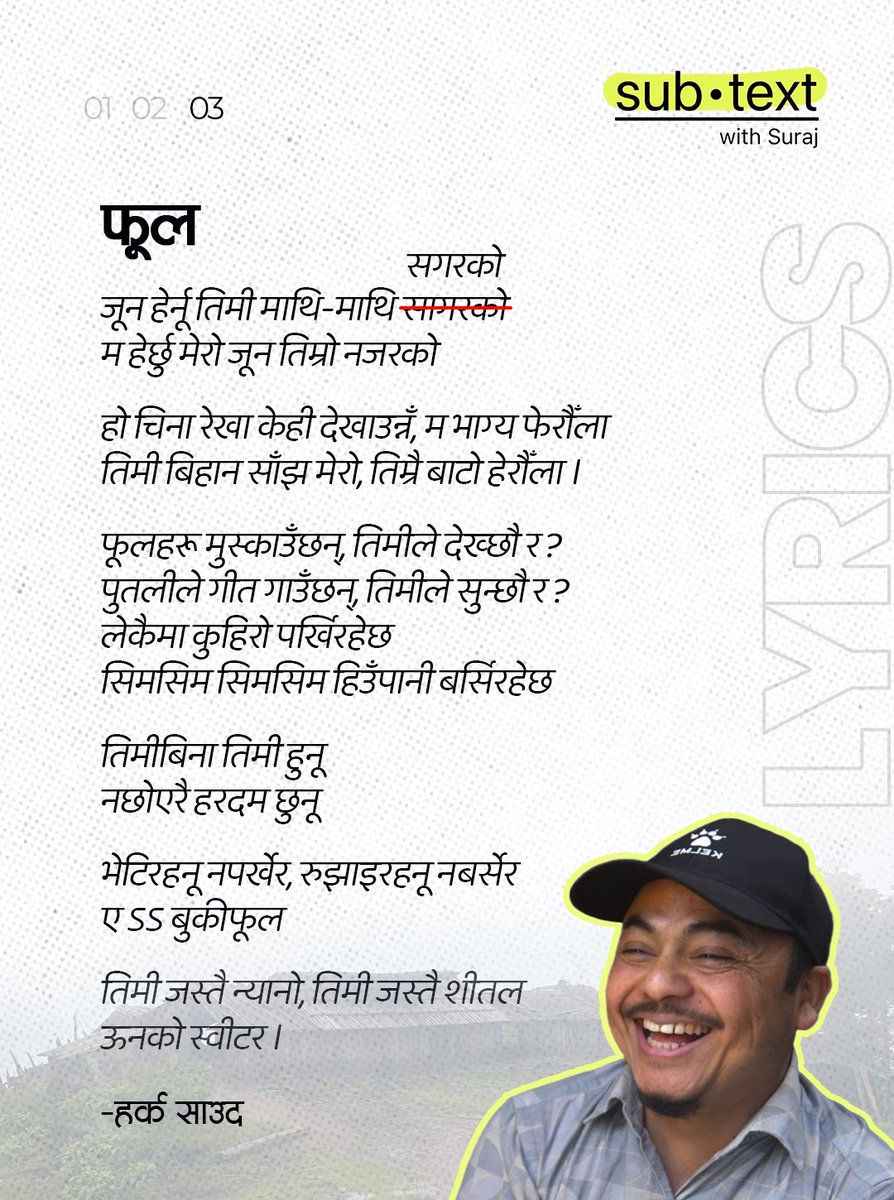 01 02 03
sub•text
with Suraj
फूल
सगरको
जून हेर्नू तिमी माथि-माथि सागरको
म हेर्छु मेरो जून तिम्रो नजरको
हो चिना रेखा केही देखाउन्नँ, म भाग्य फेरौँला
तिमी बिहान साँझ मेरो, तिम्रै बाटो हेरौँला ।
फूलहरू मुस्काउँछन्, तिमीले देख्छौ र ?
पुतलीले गीत गाउँछन्, तिमीले सुन्छौ र ?
लेकैमा कुहिरो पर्खिरहेछ
सिमसिम सिमसिम हिउँपानी बर्सिरहेछ
तिमीबिना तिमी हुनू
नछोएरै हरदम छुनू
भेटिरहनू नपर्खेर, रुझाइरहनू नबर्सेर
ए SS बुकीफूल
तिमी जस्तै न्यानो, तिमी जस्तै शीतल
ऊनको स्वीटर ।
-हर्क साउद
LYRICS
KELME